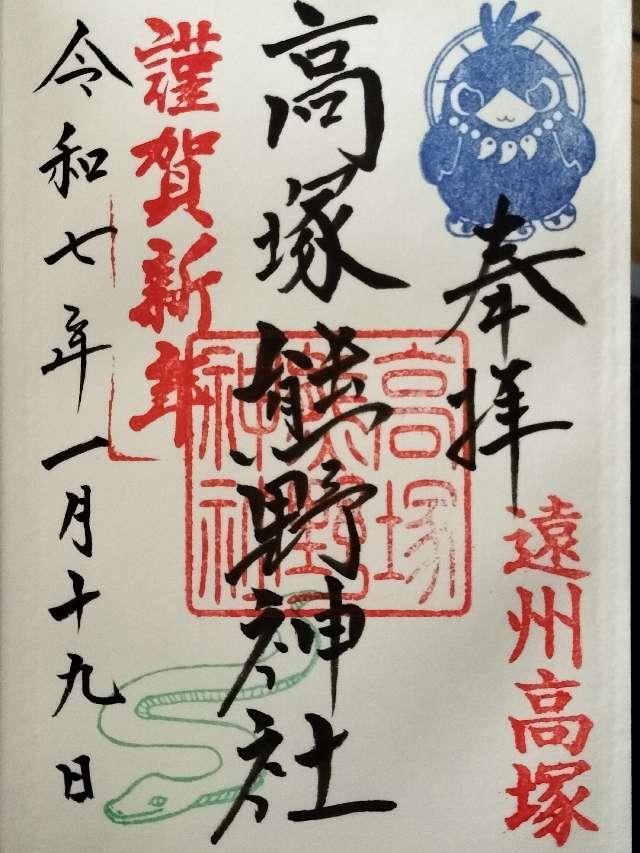 奉拝
遠州高塚
高塚熊野神社
高塚
熊野
神社
謹賀新年
令和七年一月十九日